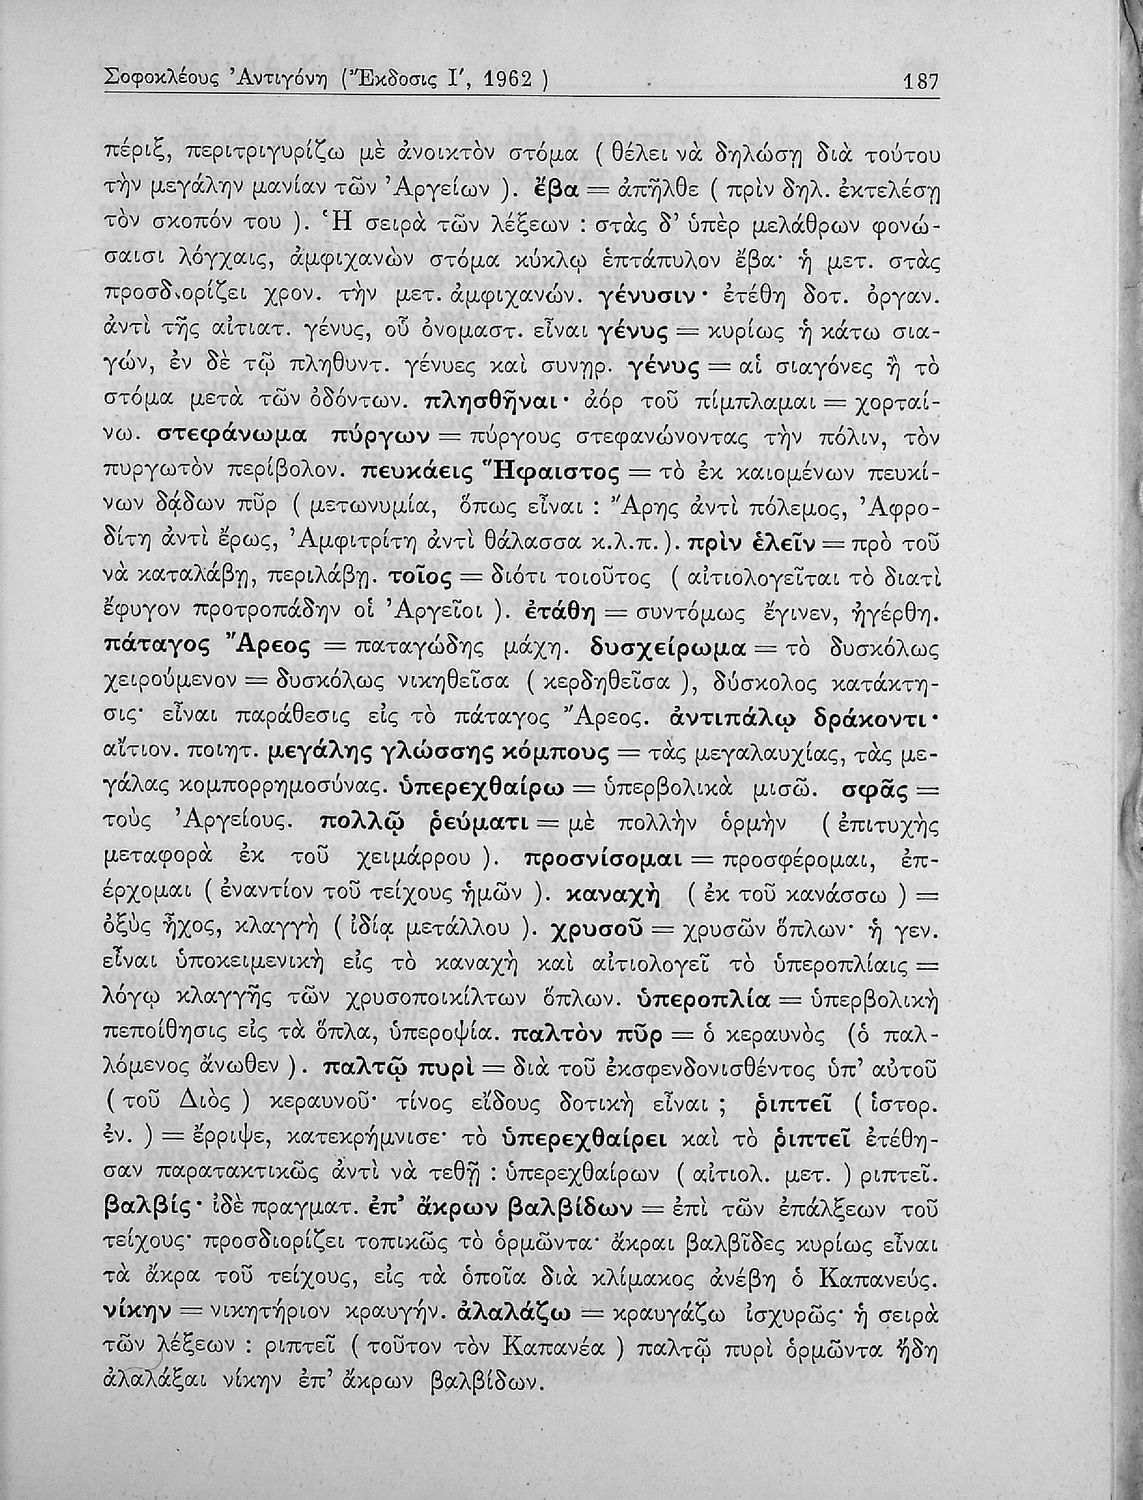 Σοφοκλέους Ἀντιγόνη (Ἔκδοσις Ι′, 1962 ) 187
πέριξ, περιτριγυρίζω μὲ ἀνοικτὸν στόμα ( θέλει νὰ δηλώσῃ διὰ τούτου
τὴν μεγάλην μανίαν τῶν Ἀργείων ). ἔβα = ἀπῆλθε ( πρὶν δηλ. ἐκτελέσῃ
τὸν σκοπόν του ). Ἡ σειρὰ τῶν λέξεων : στὰς δ’ ὑπὲρ μελάθρων φονώ-
σαισι λόγχαις, ἀμφιχανὼν στόμα κύκλῳ ἑπτάπυλον ἔβα· ἡ μετ. στὰς
προσδιορίζει χρον. τὴν μετ. ἀμφιχανών. γένυσιν· ἐτέθη δοτ. ὀργαν.
ἀντὶ τῆς αἰτιατ. γένυς, οὗ ὀνομαστ. εἶναι γένυς = κυρίως ἡ κάτω σια-
γών, ἐν δὲ τῷ πληθυντ. γένυες καὶ συνῃρ. γένυς = αἱ σιαγόνες ἢ τὸ
στόμα μετὰ τῶν ὀδόντων. πλησθῆναι· ἀόρ τοῦ πίμπλαμαι = χορταί-
νω. στεφάνωμα πύργων = πύργους στεφανώνοντας τὴν πόλιν, τὸν
πυργωτὸν περίβολον. πευκάεις Ἥφαιστος = τὸ ἐκ καιομένων πευκί-
νων δᾴδων πῦρ ( μετωνυμία, ὅπως εἶναι : Ἄρης ἀντὶ πόλεμος, Ἀφρο-
δίτη ἀντὶ ἔρως, Ἀμφιτρίτη ἀντὶ θάλασσα κ.λ.π.). πρὶν ἑλεῖν = πρὸ τοῦ
νὰ καταλάβῃ, περιλάβῃ. τοῖος = διότι τοιοῦτος ( αἰτιολογεῖται τὸ διατὶ
ἔφυγον προτροπάδην οἱ Ἀργεῖοι ). ἐτάθη = συντόμως ἔγινεν, ἠγέρθη.
πάταγος Ἄρεος = παταγώδης μάχη. δυσχείρωμα = τὸ δυσκόλως
χειρούμενον = δυσκόλως νικηθεῖσα ( κερδηθεῖσα ), δύσκολος κατάκτη-
σις· εἶναι παράθεσις εἰς τὸ πάταγος Ἄρεος. ἀντιπάλῳ δράκοντι·
αἴτιον. ποιητ. μεγάλης γλώσσης κόμπους = τὰς μεγαλαυχίας, τὰς με-
γάλας κομπορρημοσύνας. ὑπερεχθαίρω = ὑπερβολικὰ μισῶ. σφᾶς =
τοὺς Ἀργείους. πολλῷ ῥεύματι = μὲ πολλὴν ὁρμὴν ( ἐπιτυχὴς
μεταφορὰ ἐκ τοῦ χειμάρρου ). προσνίσομαι = προσφέρομαι, ἐπ-
έρχομαι ( ἐναντίον τοῦ τείχους ἡμῶν ). καναχὴ ( ἐκ τοῦ κανάσσω ) =
ὀξὺς ἦχος, κλαγγὴ ( ἰδίᾳ μετάλλου ). χρυσοῦ = χρυσῶν ὅπλων· ἡ γεν.
εἶναι ὑποκειμενικὴ εἰς τὸ καναχὴ καὶ αἰτιολογεῖ τὸ ὑπεροπλίαις =
λόγῳ κλαγγῆς τῶν χρυσοποικίλτων ὅπλων. ὑπεροπλία = ὑπερβολικὴ
πεποίθησις εἰς τὰ ὅπλα, ὑπεροψία. παλτὸν πῦρ = ὁ κεραυνὸς (ὁ παλ-
λόμενος ἄνωθεν ). παλτῷ πυρὶ = διὰ τοῦ ἐκσφενδονισθέντος ὑπ’ αὐτοῦ
( τοῦ Διὸς ) κεραυνοῦ· τίνος εἴδους δοτικὴ εἶναι ; ῥιπτεῖ ( ἱστορ.
ἐν. ) = ἔρριψε, κατεκρήμνισε· τὸ ὑπερεχθαίρει καὶ τὸ ῥιπτεῖ ἐτέθη-
σαν παρατακτικῶς ἀντὶ νὰ τεθῇ : ὑπερεχθαίρων ( αἰτιολ. μετ. ) ριπτεῖ.
βαλβίς· ἰδὲ πραγματ. ἐπ’ ἄκρων βαλβίδων = ἐπὶ τῶν ἐπάλξεων τοῦ
τείχους· προσδιορίζει τοπικῶς τὸ ὁρμῶντα· ἄκραι βαλβῖδες κυρίως εἶναι
τὰ ἄκρα τοῦ τείχους, εἰς τὰ ὁποῖα διὰ κλίμακος ἀνέβη ὁ Καπανεύς.
νίκην = νικητήριον κραυγήν. ἀλαλάζω = κραυγάζω ἰσχυρῶς· ἡ σειρὰ
τῶν λέξεων : ριπτεῖ ( τοῦτον τὸν Καπανέα ) παλτῷ πυρὶ ὁρμῶντα ἤδη
ἀλαλάξαι νίκην ἐπ’ ἄκρων βαλβίδων.